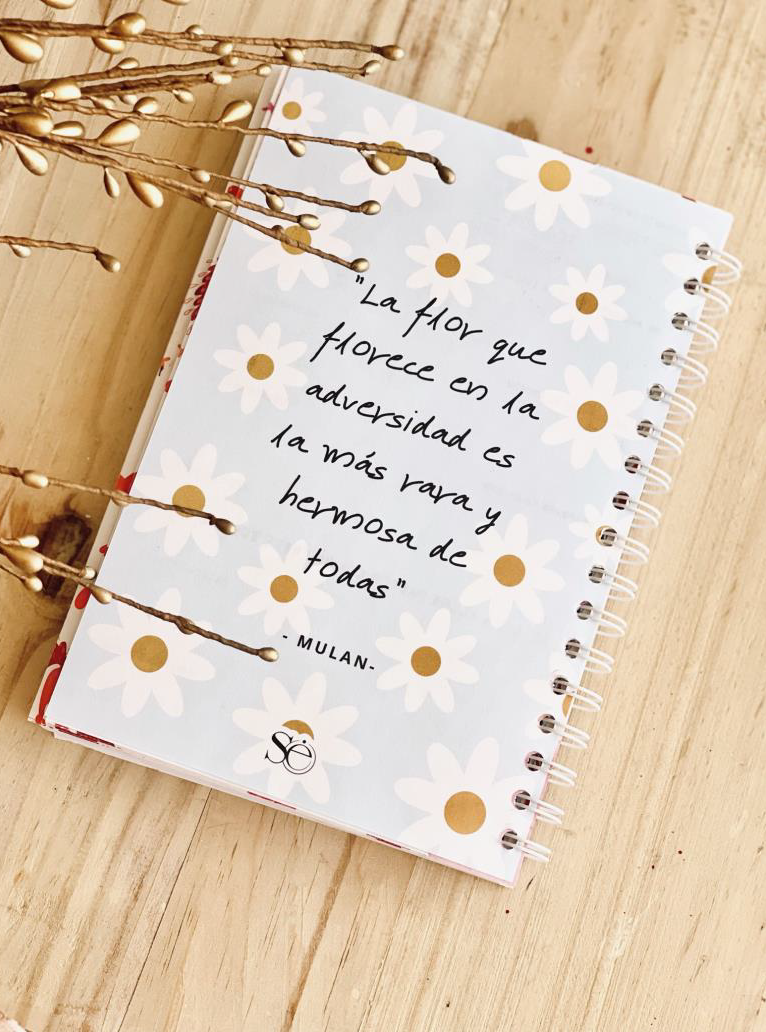 "La flor que
florece en la
adversidad es
la más rara y
hermosa de
todas"
- MULAN-
sé